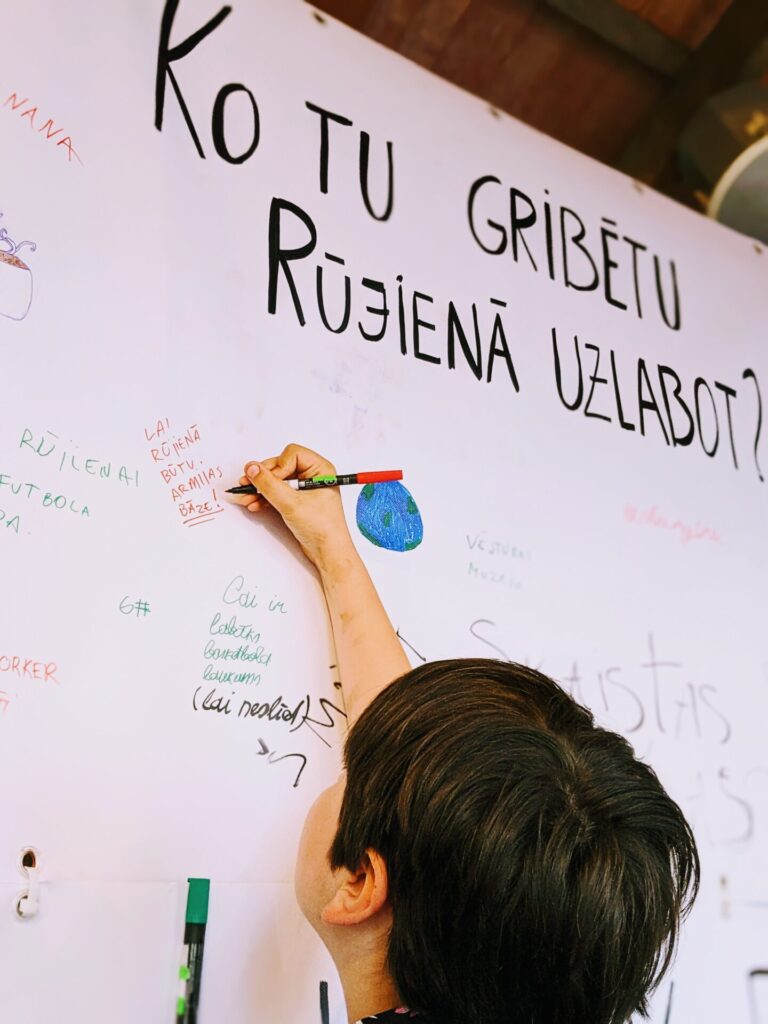 KO TU GRIBĒTU
RŪJIENĀ UZLABOT?
NANA
RŪJIENAI
FUTBOLA
LAI
RŪJIENĀ
BŪTU
ARMIJAS
BĀZE!
6#
Lai ir
labāks
basketbola
laukums
(lai neslīd)
VĒSTURES
MUZEJS
ORKER
SKAISTAS